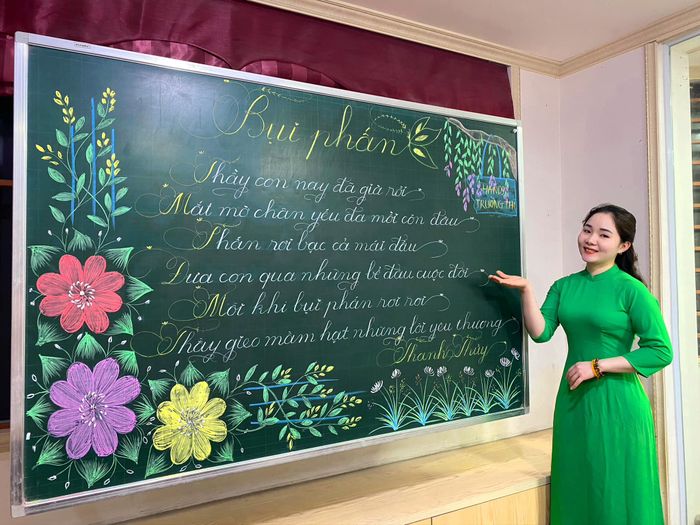 Bụi phấn
HAND
TRƯỜNG THI
Thầy con nay đã già rồi
Mắt mờ chân yếu da mồi còn đâu
Phấn rơi bạc cả mái đầu
Đưa con qua những bể dâu cuộc đời
Mỗi khi bụi phấn rơi rơi
Thầy gieo mầm hạt những lời yêu thương
Thanh Thúy